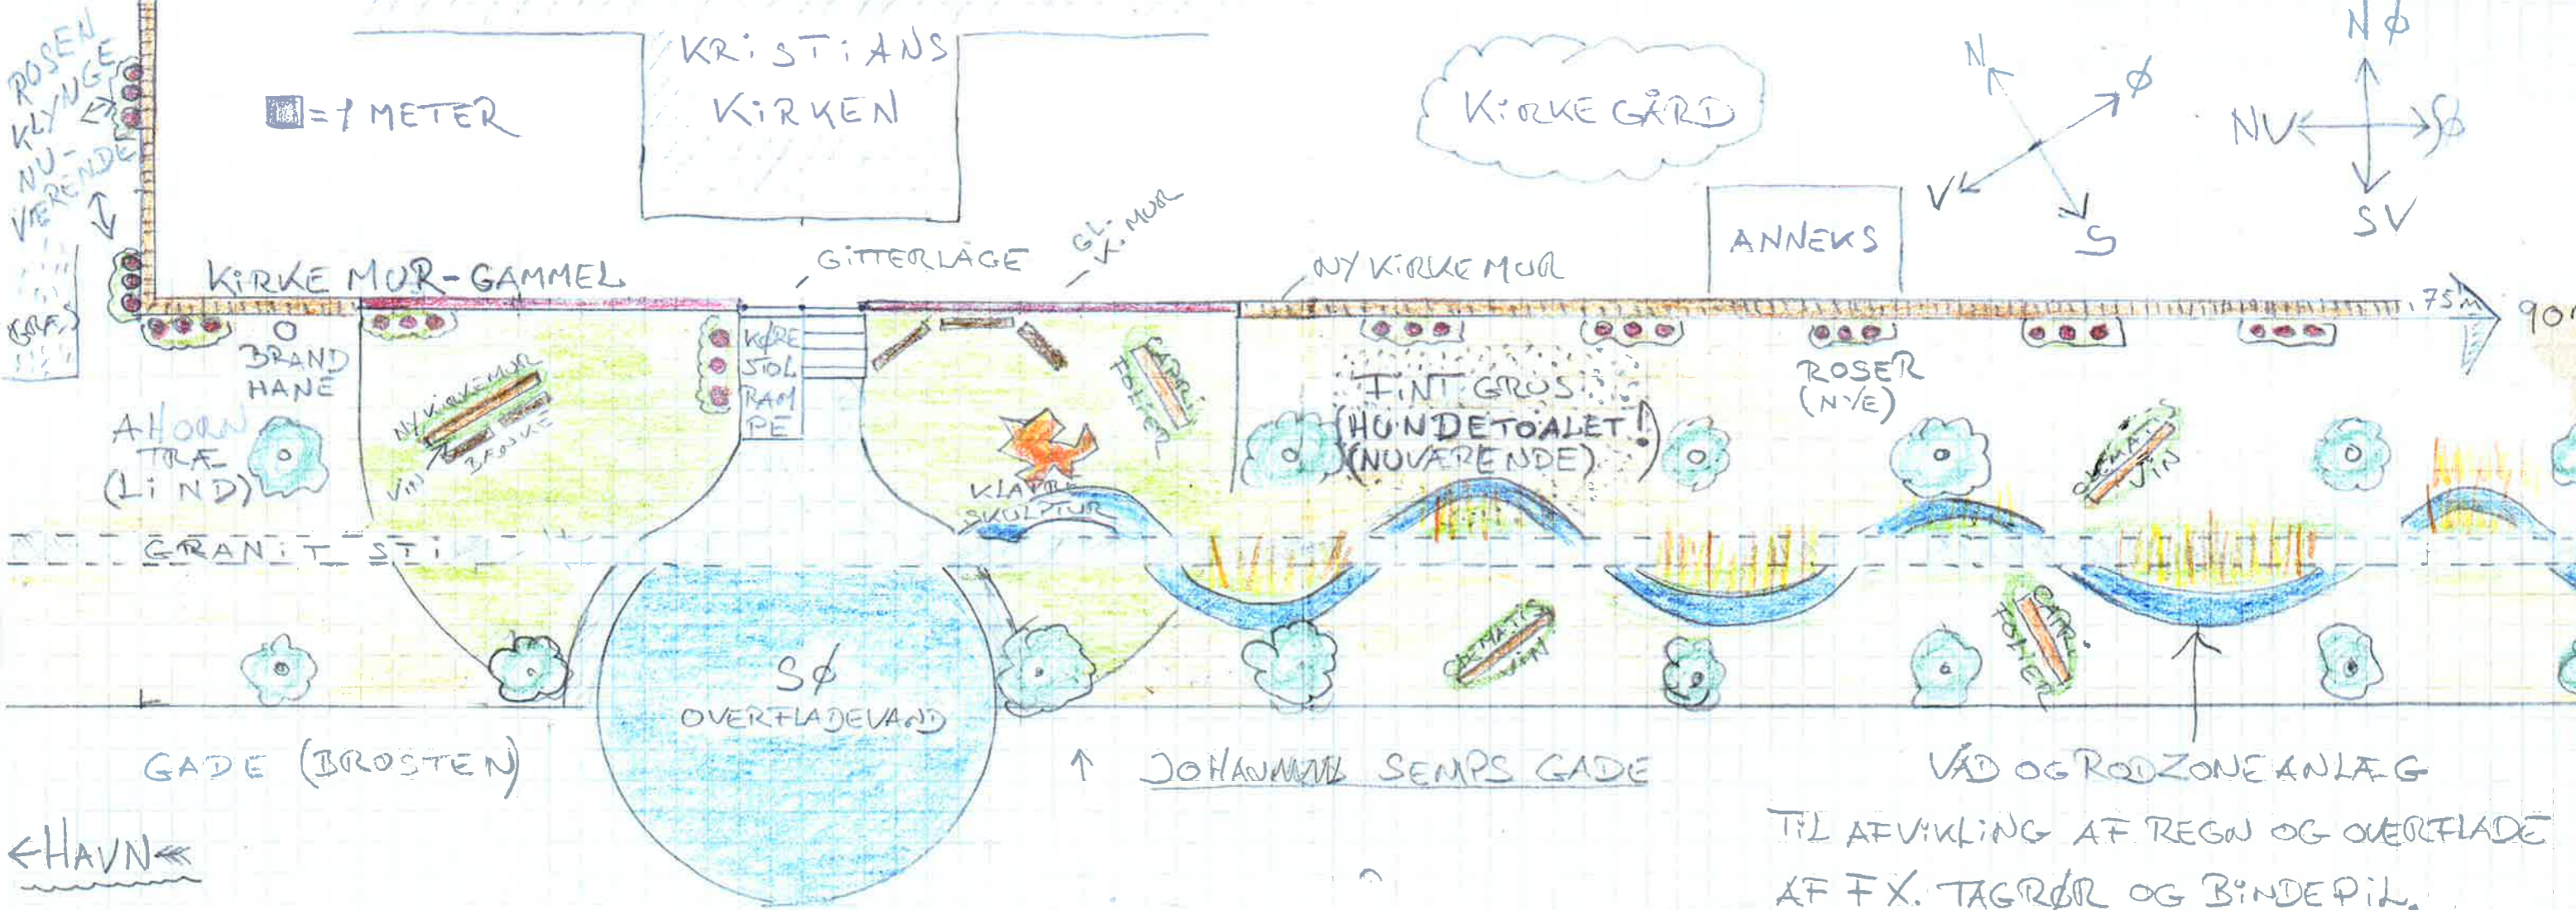 ROSEN
KLYNGE
NU-
VÆRENDE
GRÆS
= 1 METER
KRISTIANS
KIRKEN
KIRKEGÅRD
N
Ø
V
S
NØ
NV
SØ
SV
ANNEKS
KIRKE MUR-GAMMEL
GITTERLÅGE
GL.
K. MUR
NY KIRKE MUR
75 M
BRAND
HANE
AHORN
TRÆ
(LIND)
NY KIRKEMUR
BÆNKE
VIN
KØRE
STOL
RAM
PE
KLATRE
SKULPTUR
FINT GRUS
(HUNDETOALET!)
(NUVÆRENDE)
ROSER
(NYE)
CLEMATIS
VIN
GRANIT STI
CLEMATIS
VIN
SØ
OVERFLADEVAND
GADE (BROSTEN)
SEMPS GADE
←HAVN
VÅD OG RODZONEANLÆG
TIL AFVIKLING AF REGN OG OVERFLADE
AF FX. TAGRØR OG BINDEPIL.